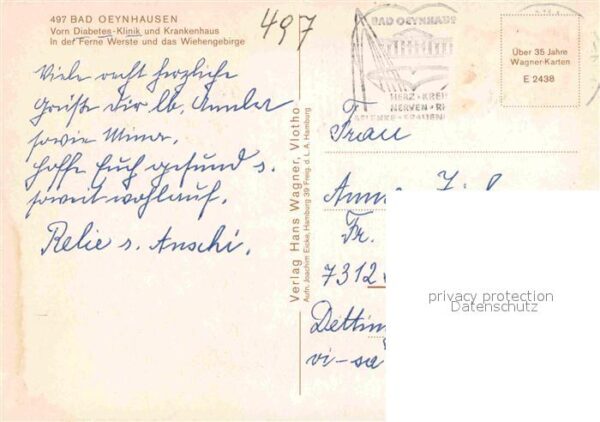 497 BAD OEYNHAUSEN
Vorn Diabetes-Klinik und Krankenhaus
In der Ferne Werste und das Wiehengebirge
497
BAD OEYNHAUS
HERZ · KREI
NERVEN · RH
GELENKE · FRAUEN
Über 35 Jahre
Wagner-Karten
E 2438
Viele recht herzliche
Grüße Dir lb.
sowie
hoffe Euch gesund u.
soweit wohlauf.
Verlag Hans Wagner, Vlotho
Aufn. Joachim Eicke, Hamburg 39 Freig. d. L. A. Hamburg
Frau
Fr.
7312
Dettin
vi-sa
privacy protection
Datenschutz